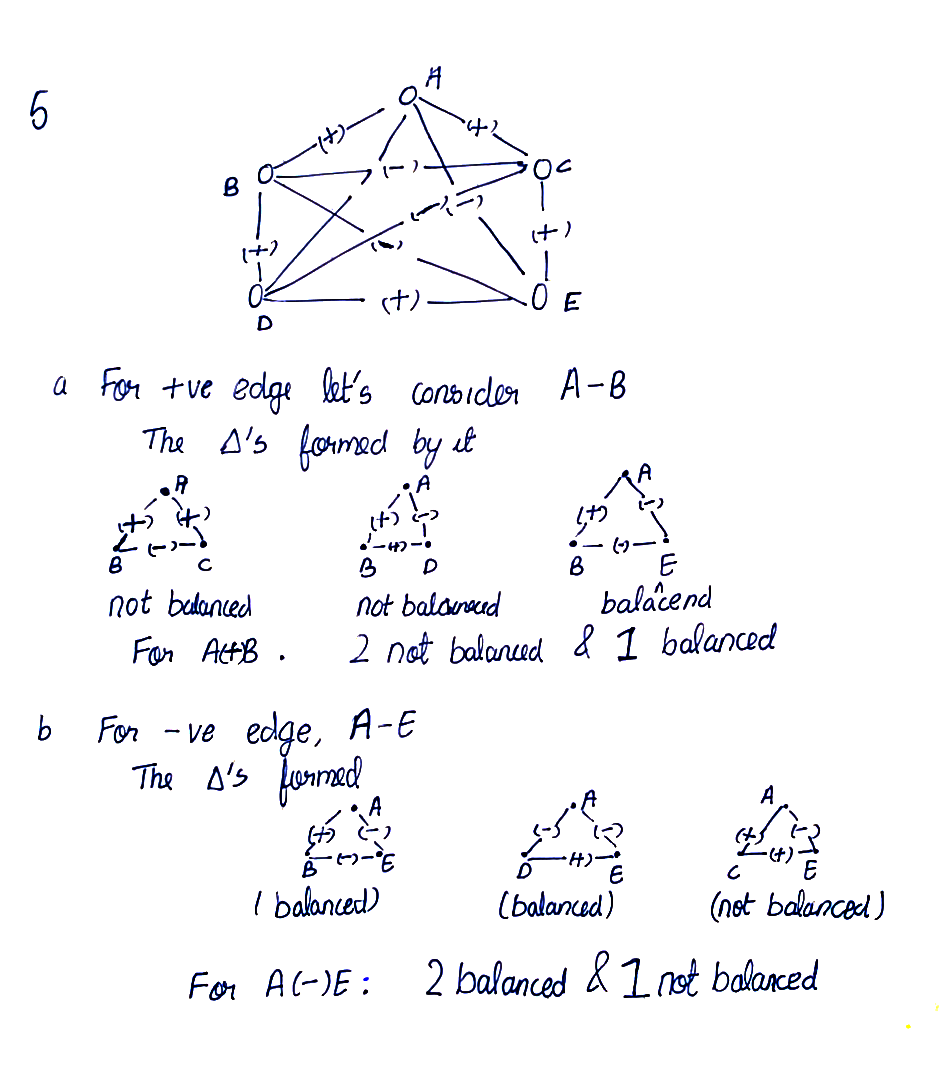 5
A
(+) (+)
B (-) C
(-) (-)
(+) (-) (+)
(+)
D E
a For +ve edge let's consider A-B
The Δ's formed by it
A A A
(+) (+) (+) (-) (+) (-)
(-) (+) (-)
B C B D B E
not balanced not balanced balacend
For A(+)B . 2 not balanced & 1 balanced
b For -ve edge, A-E
The Δ's formed
A A A
(+) (-) (-) (-) (+) (-)
B (-) E D (+) E C (+) E
(balanced) (balanced) (not balanced)
For A(-)E: 2 balanced & 1 not balanced